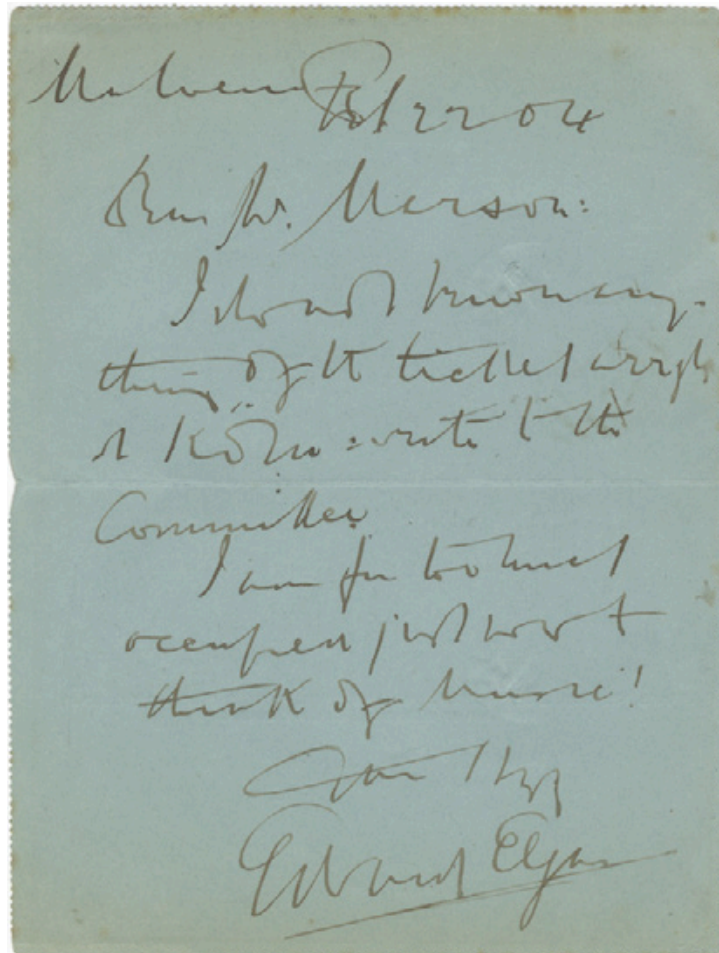 Malvern Feb 22 04
Dear Mr. Marson:
I do not know any-
thing of the ticket arrgts
at Köln: write to the
Committee
I am far too much
occupied just now to
think of music!
Edward Elgar